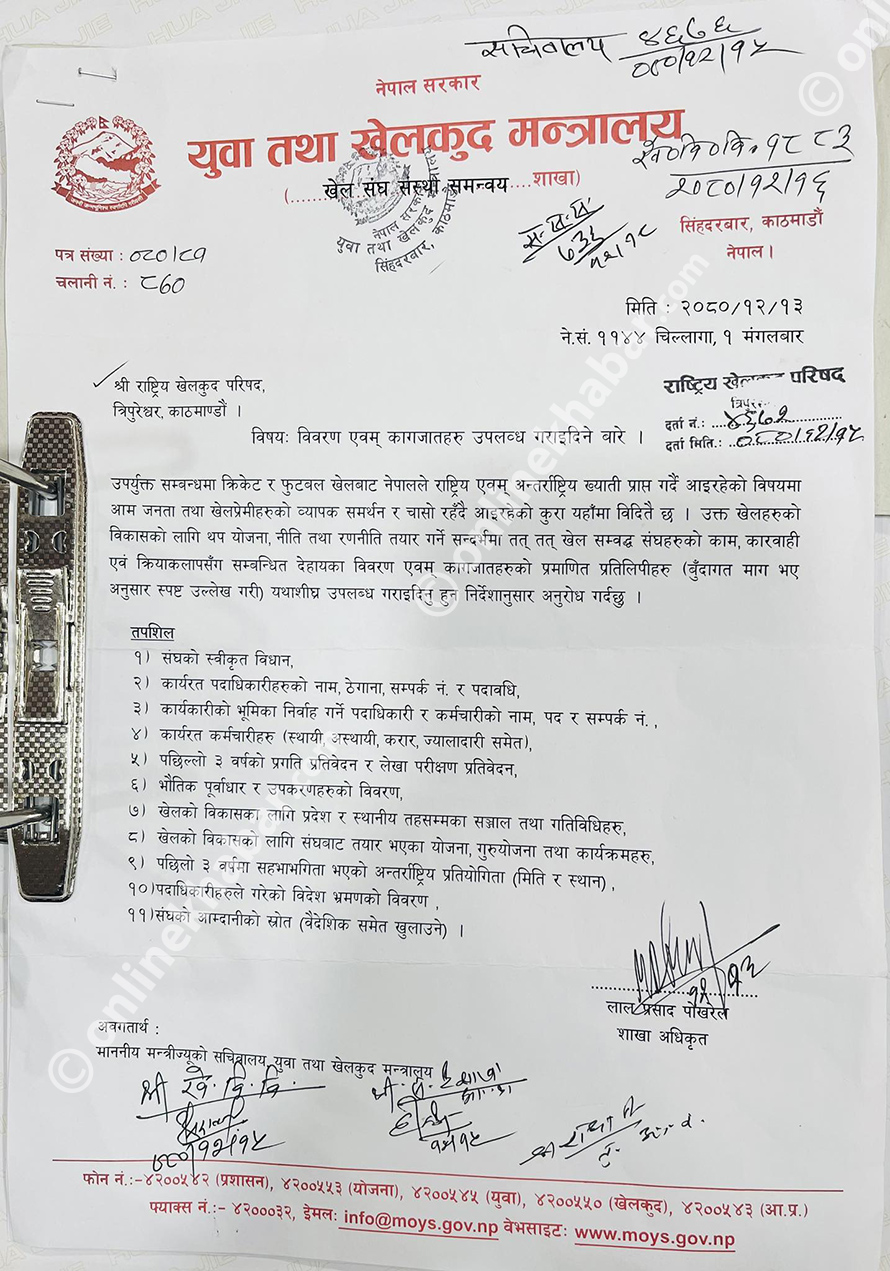 सचिवालय ४६७६
०८०/१२/१५
नेपाल सरकार
युवा तथा खेलकुद मन्त्रालय
(......खेल संघ संस्था समन्वय....शाखा)
१८८३
२०८०/१२/१६
नेपाल सरकार
युवा तथा खेलकुद मन्त्रालय
सिंहदरबार, काठमाडौं
७३६
१२/१८
सिंहदरबार, काठमाडौं
नेपाल।
पत्र संख्या : ०८०/८१
चलानी नं. : ८६०
मिति : २०८०/१२/१३
ने.सं. ११४४ चिल्लागा, १ मंगलबार
श्री राष्ट्रिय खेलकुद परिषद,
त्रिपुरेश्वर, काठमाण्डौं ।
राष्ट्रिय खेलकुद परिषद
दर्ता नं.: ४३७२
दर्ता मिति.: ०८०/१२/१५
विषयः विवरण एवम् कागजातहरु उपलब्ध गराइदिने बारे ।
उपर्युक्त सम्बन्धमा क्रिकेट र फुटबल खेलबाट नेपालले राष्ट्रिय एवम् अन्तर्राष्ट्रिय ख्याती प्राप्त गर्दै आइरहेको विषयमा
आम जनता तथा खेलप्रेमीहरुको व्यापक समर्थन र चासो रहँदै आइरहेको कुरा यहाँमा विदितै छ । उक्त खेलहरुको
विकासको लागि थप योजना, नीति तथा रणनीति तयार गर्ने सन्दर्भमा तत् तत् खेल सम्वद्ध संघहरुको काम, कारवाही
एवं क्रियाकलापसँग सम्बन्धित देहायका विवरण एवम् कागजातहरुको प्रमाणित प्रतिलिपीहरु (बुँदागत माग भए
अनुसार स्पष्ट उल्लेख गरी) यथाशीघ्र उपलब्ध गराइदिनु हुन निर्देशानुसार अनुरोध गर्दछु ।
तपशिल
१) संघको स्वीकृत विधान,
२) कार्यरत पदाधिकारीहरुको नाम, ठेगाना, सम्पर्क नं. र पदावधि,
३) कार्यकारीको भूमिका निर्वाह गर्ने पदाधिकारी र कर्मचारीको नाम, पद र सम्पर्क नं. ,
४) कार्यरत कर्मचारीहरु (स्थायी, अस्थायी, करार, ज्यालादारी समेत),
५) पछिल्लो ३ वर्षको प्रगति प्रतिवेदन र लेखा परीक्षण प्रतिवेदन,
६) भौतिक पूर्वाधार र उपकरणहरुको विवरण,
७) खेलको विकासका लागि प्रदेश र स्थानीय तहसम्मका सञ्जाल तथा गतिविधिहरु,
८) खेलको विकासको लागि संघवाट तयार भएका योजना, गुरुयोजना तथा कार्यक्रमहरु,
९) पछिलो ३ वर्षमा सहभाभगिता भएको अन्तर्राष्ट्रिय प्रतियोगिता (मिति र स्थान) ,
१०)पदाधिकारीहरुले गरेको विदेश भ्रमणको विवरण ,
११)संघको आम्दानीको स्रोत (वैदेशिक समेत खुलाउने) ।
१२/१३
लाल प्रसाद पौखरेल
शाखा अधिकृत
अवगतार्थ :
माननीय मन्त्रीज्यूको सचिवालय, युवा तथा खेलकुद मन्त्रालय
श्री खे. वि. वि.
०८०/१२/१५
१२/१५
फोन नं.:-४२००५४२ (प्रशासन), ४२००५५३ (योजना), ४२००५४५ (युवा), ४२००५५० (खेलकुद), ४२००५४३ (आ.प्र.)
फ्याक्स नं.:- ४२०००३२, ईमेल: info@moys.gov.np वेभसाइट: www.moys.gov.np
© onlinekhabar.com